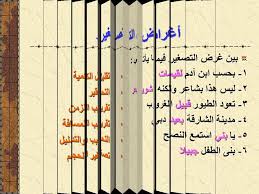 أغراض التصغير
بين غرض التصغير فيما يأتي:
١- بحسب ابن آدم لقيمات
٢- ليس هذا بشاعر ولكنه شويعر
٣- تعود الطيور قبيل الغروب
٤- مدينة الشارقة بعيد دبي
٥- يا بني استمع النصح
٦- بنى الطفل جبيلا
تقليل الكمية
التحقير
تقريب الزمن
تقريب المسافة
التحبب والتدليل
تصغير الحجم